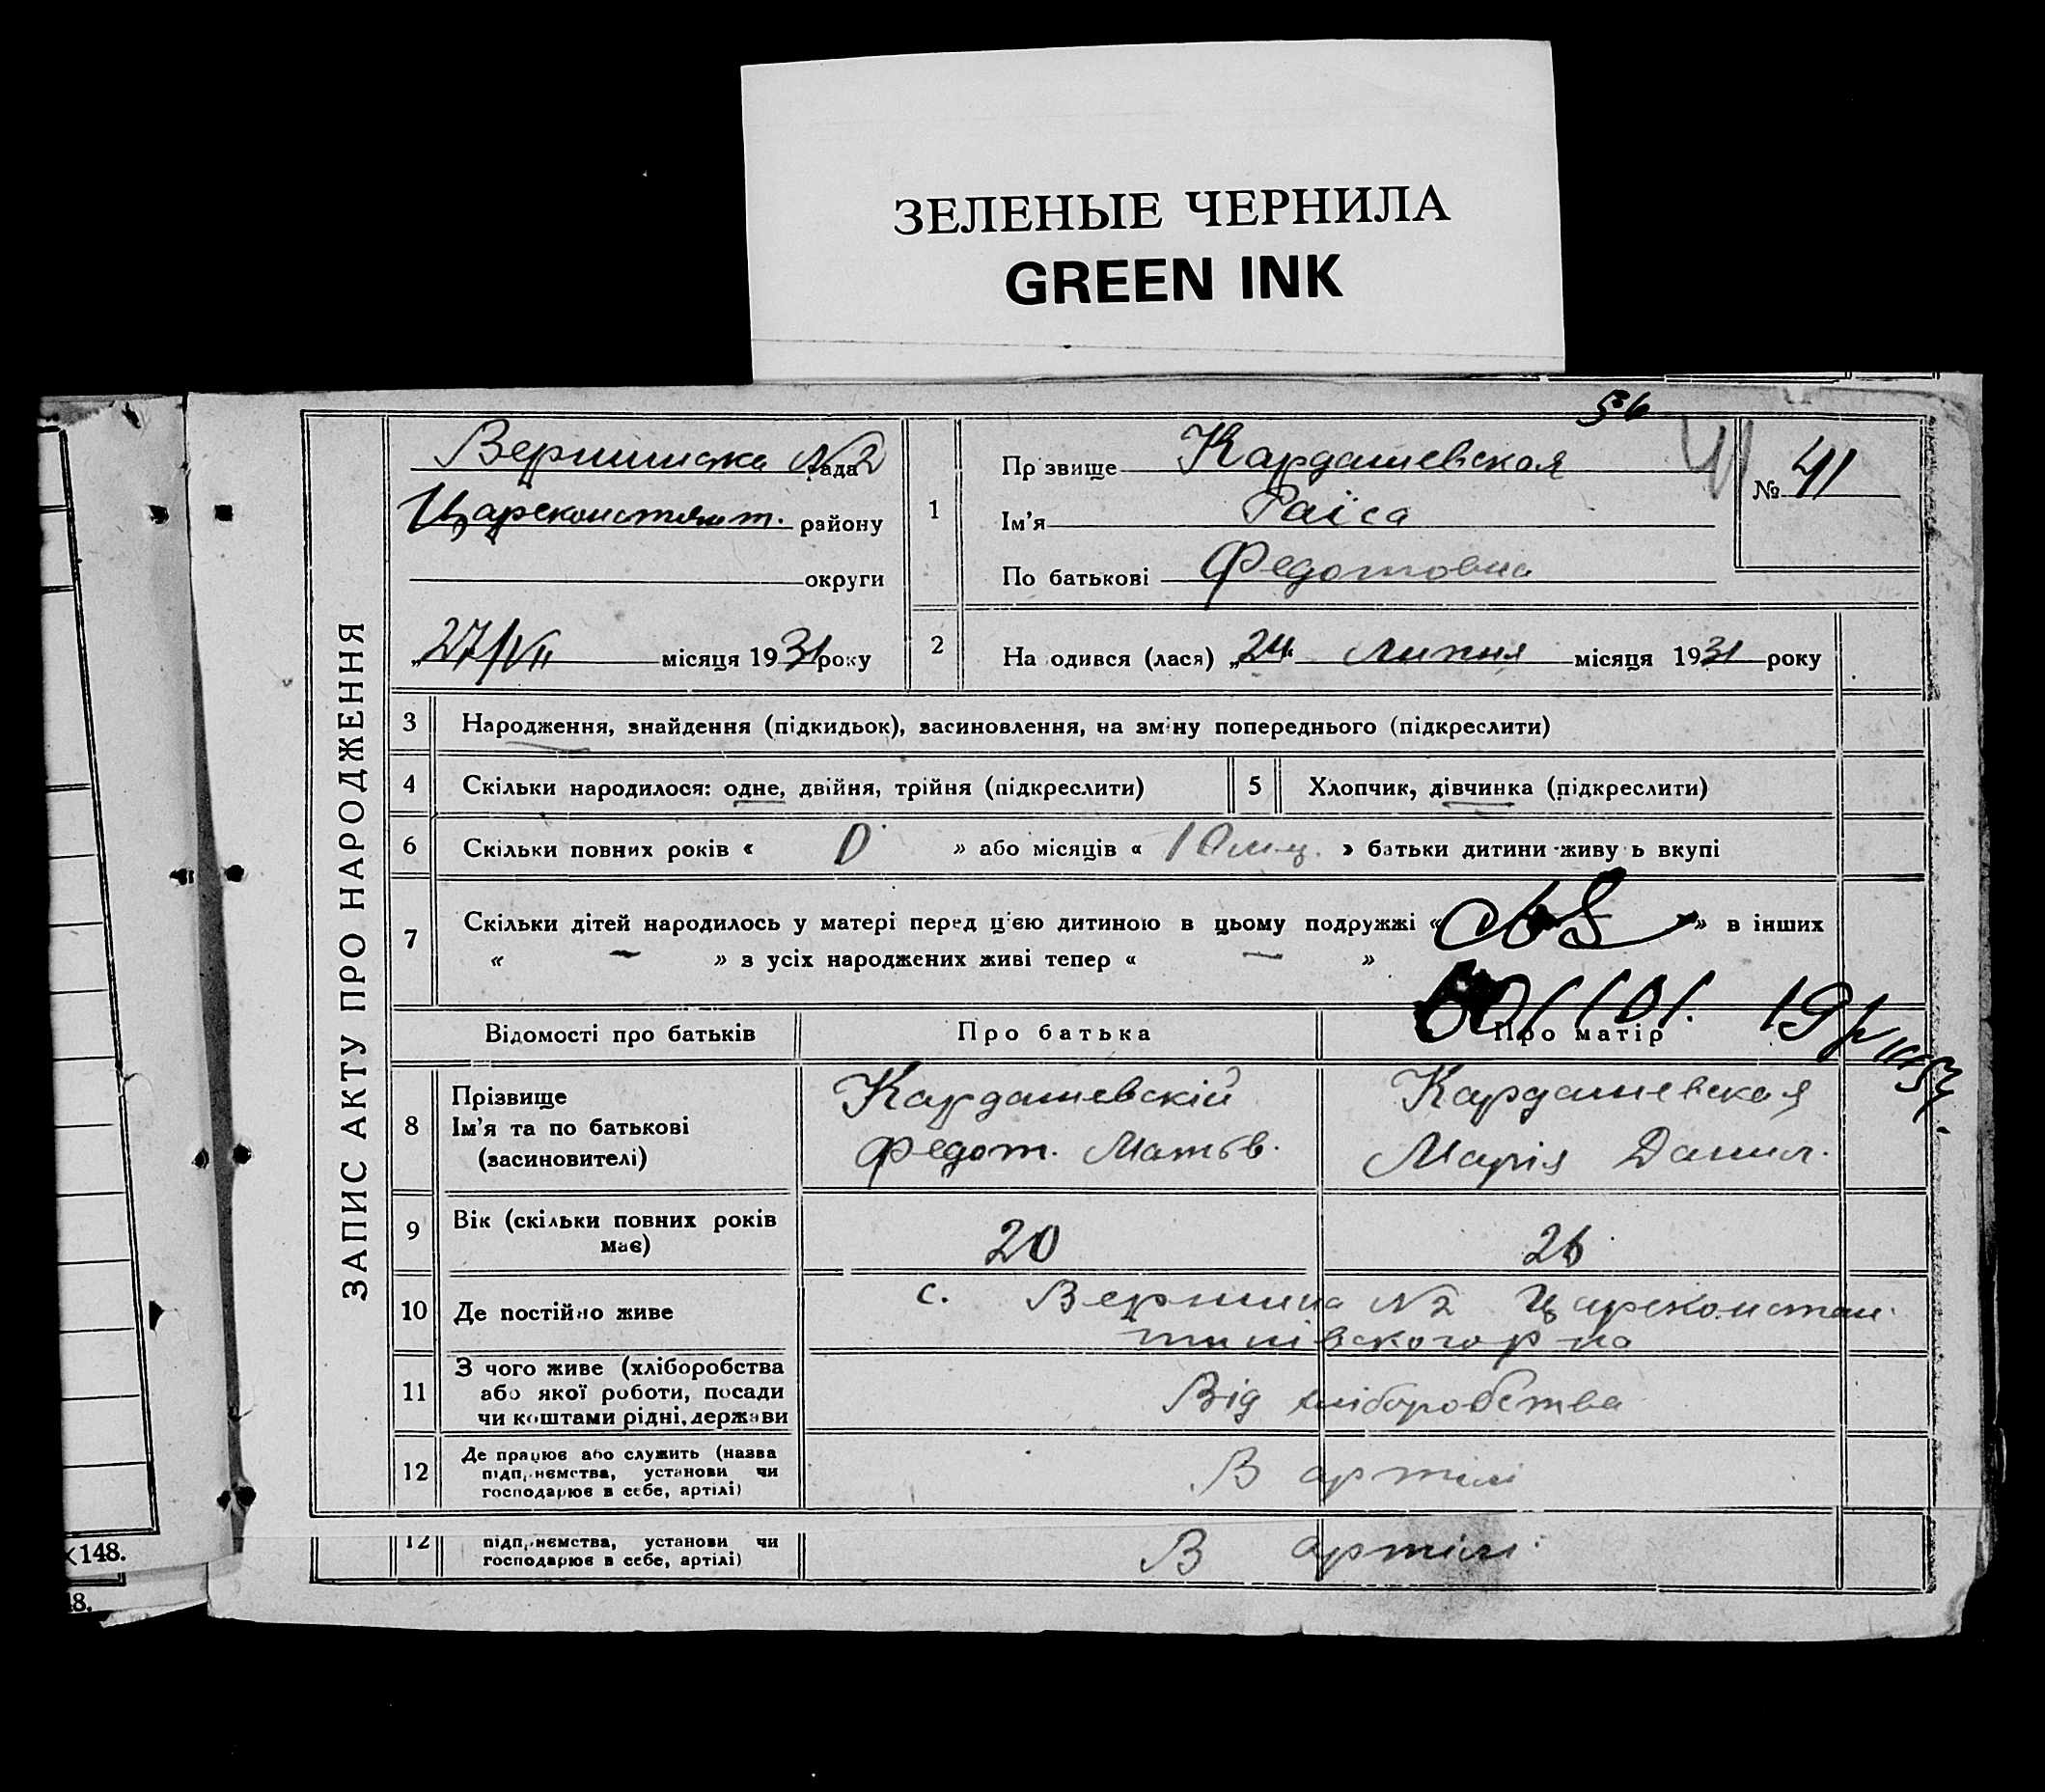 ЗЕЛЕНЫЕ ЧЕРНИЛА
GREEN INK
56
ЗАПИС АКТУ ПРО НАРОДЖЕННЯ
Вершинска №2 рада
Царсконстант. району
округи
„27/VII місяця 1931 року
1
Пр звище Кардашевская
Ім’я Раїса
По батькові Федотовна
41
№ 41
2
На одився (лася) „24 Липня місяця 1931 року
3 Народження, знайдення (підкидьок), засиновлення, на зміну попереднього (підкреслити)
4 Скільки народилося: одне, двійня, трійня (підкреслити)
5 Хлопчик, дівчинка (підкреслити)
6 Скільки повних років « 0 » або місяців « 10 м-ц. » батьки дитини живу ь вкупі
7 Скільки дітей народилось у матері перед ц'єю дитиною в цьому подружжі « » в інших
« — » з усіх народжених живі тепер « — »
Відомості про батьків Про батька Про матір
8 Прізвище
Ім’я та по батькові
(засиновителі)
Кардашевскій
Федот. Матв.
Кардашевская
Марія Данил.
9 Вік (скільки повних років
має)
20
26
10 Де постійно живе
с. Вершина №2 Царсконстан
тинівского р-на
11 З чого живе (хліборобства
або якої роботи, посади
чи коштами рідні, держави
Від хліборобства
12 Де працює або служить (назва
підпр.нємства, установи чи
господарює в себе, артілі)
В артілі
12 підпр.нємства, установи чи
господарює в себе, артілі)
В артілі
148.
8.